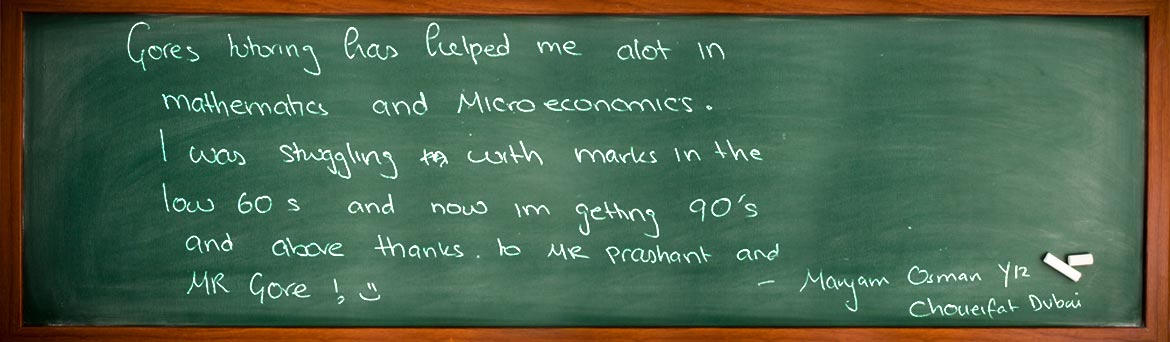 Gores tutoring has helped me alot in
mathematics and Microeconomics.
I was struggling with marks in the
low 60s and now im getting 90's
and above thanks. to MR prashant and
MR Gore ! :)
- Maryam Osman Y12
Choueifat Dubai